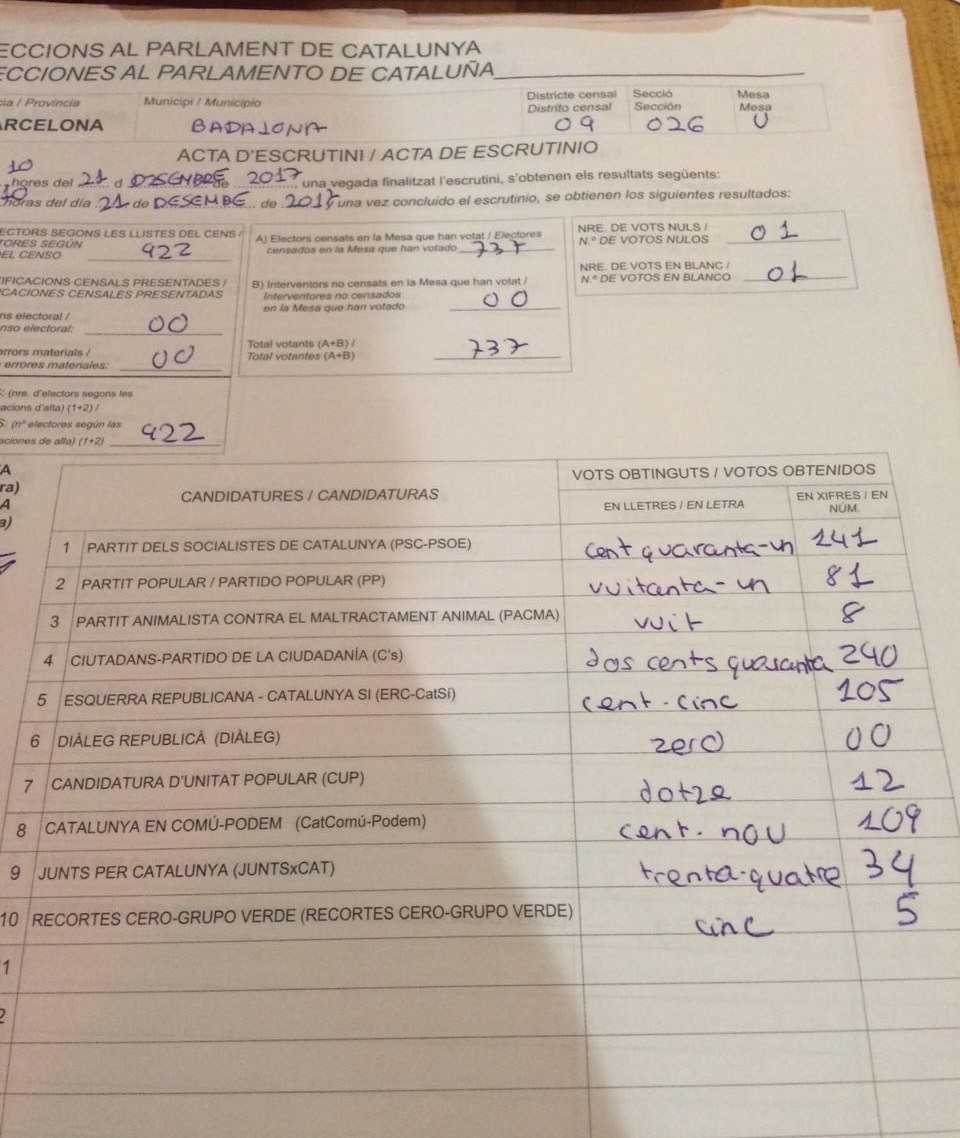 ECCIONS AL PARLAMENT DE CATALUNYA
ECCIONES AL PARLAMENTO DE CATALUÑA
cia / Provincia
RCELONA
Municipi / Municipio
BADALONA
Districte censal
Distrito censal
09
Secció
Sección
026
Mesa
Mesa
U
ACTA D'ESCRUTINI / ACTA DE ESCRUTINIO
10 hores del 21 d DESEMBRE de 2017, una vegada finalitzat l'escrutini, s'obtenen els resultats següents:
10 horas del día 21 de DESEMBE de 2017, una vez concluido el escrutinio, se obtienen los siguientes resultados:
ECTORS SEGONS LES LLISTES DEL CENS /
TORES SEGÚN
DEL CENSO
922
IFICACIONS CENSALS PRESENTADES /
ICACIONES CENSALES PRESENTADAS
ns electoral /
nso electoral:
00
errors materials /
errores materiales:
00
: (nre. d'electors segons les
acions d'alta) (1+2) /
S. (nº electores según las
aciones de alta) (1+2)
922
A) Electors censats en la Mesa que han votat / Electores
censados en la Mesa que han votado
737
B) Interventors no censats en la Mesa que han votat /
Interventores no censados
en la Mesa que han votado
00
Total votants (A+B) /
Total votantes (A+B)
737
NRE. DE VOTS NULS /
N.º DE VOTOS NULOS
01
NRE. DE VOTS EN BLANC /
N.º DE VOTOS EN BLANCO
01
A
ra)
A
a)
CANDIDATURES / CANDIDATURAS
VOTS OBTINGUTS / VOTOS OBTENIDOS
EN LLETRES / EN LETRA
EN XIFRES / EN
NÚM.
1 PARTIT DELS SOCIALISTES DE CATALUNYA (PSC-PSOE) cent quaranta-un 141
2 PARTIT POPULAR / PARTIDO POPULAR (PP) vuitanta-un 81
3 PARTIT ANIMALISTA CONTRA EL MALTRACTAMENT ANIMAL (PACMA) vuit 8
4 CIUTADANS-PARTIDO DE LA CIUDADANÍA (C's) dos cents quaranta 240
5 ESQUERRA REPUBLICANA - CATALUNYA SI (ERC-CatSí) cent.cinc 105
6 DIÀLEG REPUBLICÀ (DIÀLEG) zero 00
7 CANDIDATURA D'UNITAT POPULAR (CUP) dotze 12
8 CATALUNYA EN COMÚ-PODEM (CatComú-Podem) cent.nou 109
9 JUNTS PER CATALUNYA (JUNTSxCAT) trenta-quatre 34
10 RECORTES CERO-GRUPO VERDE (RECORTES CERO-GRUPO VERDE) cinc 5
1
2